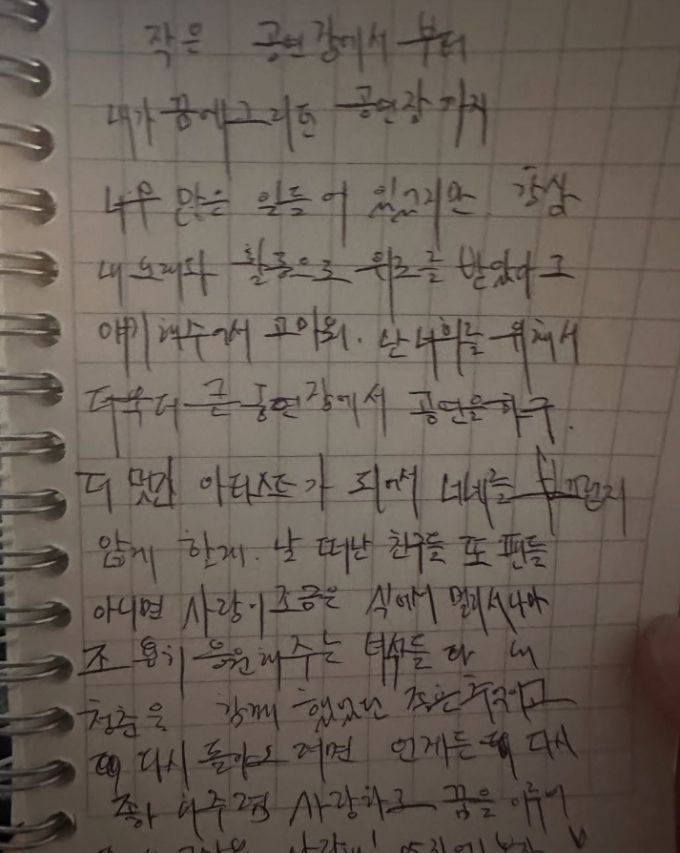 작은 공연장에서 부터
내가 꿈에 그리던 공연장 까지
너무 많은 일들이 있었지만 항상
내 노래와 활동으로 위로를 받았다고
얘기해주어서 고마워. 난 너희를 위해서
더욱더 큰 공연장에서 공연을 하구.
더 멋진 아티스트가 되어서 너네를 부끄럽지
않게 할게. 날 떠난 친구들 또 팬들
아니면 사랑이 조금은 식어서 멀리서나마
조용히 응원해주는 녀석들 다 내
청춘을 함께 했었던 좋은 추억이고
다시 돌아오려면 언제든 다시
좋아해주렴 사랑하고 꿈을 이루어